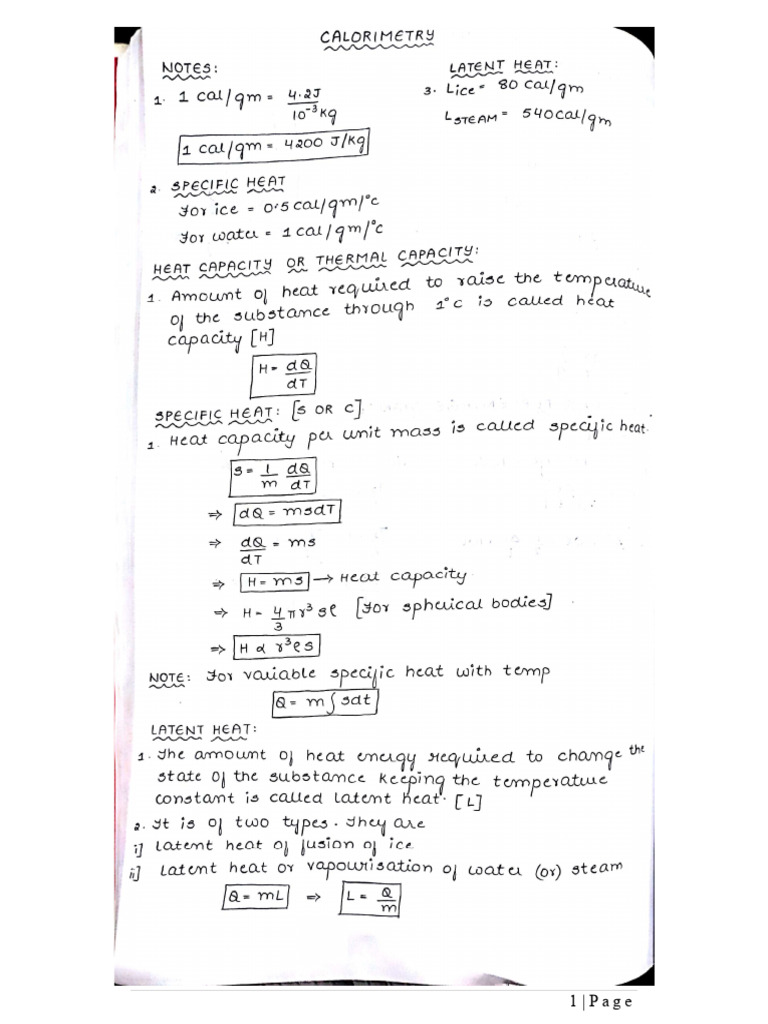 CALORIMETRY
NOTES:
1. 1 cal/gm = 4.2J / 10⁻³ kg
1 cal/gm = 4200 J/kg
LATENT HEAT:
3. Lice = 80 cal/gm
LSTEAM = 540cal/gm
2. SPECIFIC HEAT
For ice = 0.5 cal/gm/°c
For water = 1 cal/gm/°c
HEAT CAPACITY OR THERMAL CAPACITY:
1. Amount of heat required to raise the temperature
of the substance through 1°c is called heat
capacity [H]
H = dQ/dT
SPECIFIC HEAT: [S OR C]
1. Heat capacity per unit mass is called specific heat.
s = 1/m dQ/dT
⇒ dQ = msdT
⇒ dQ/dT = ms
⇒ H = ms → Heat capacity
⇒ H = 4/3 πr³ sρ [For spherical bodies]
⇒ H ∝ r³ρs
NOTE: For variable specific heat with temp
Q = m∫sdt
LATENT HEAT:
1. The amount of heat energy required to change the
state of the substance keeping the temperature
constant is called latent heat. [L]
2. It is of two types. They are
i] latent heat of fusion of ice
ii] latent heat or vapourisation of water (or) steam
Q = mL ⇒ L = Q/m
1 | Page